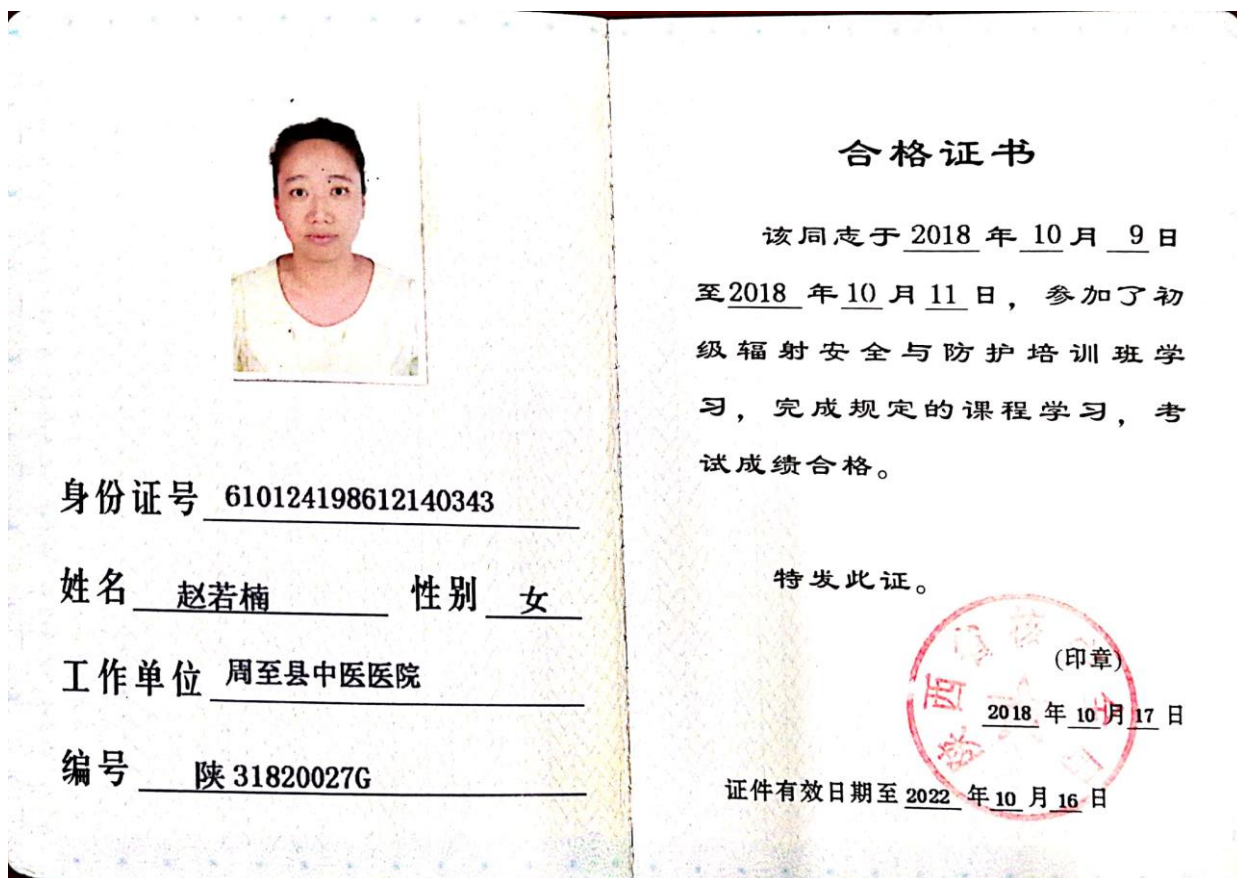 身份证号 610124198612140343
姓名 赵若楠 性别 女
工作单位 周至县中医医院
编号 陕 31820027G
合格证书
该同志于 2018 年 10 月 9 日
至2018 年 10 月 11 日，参加了初
级辐射安全与防护培训班学
习，完成规定的课程学习，考
试成绩合格。
特发此证。
(印章)
2018 年 10 月 17 日
证件有效日期至 2022 年 10 月 16 日